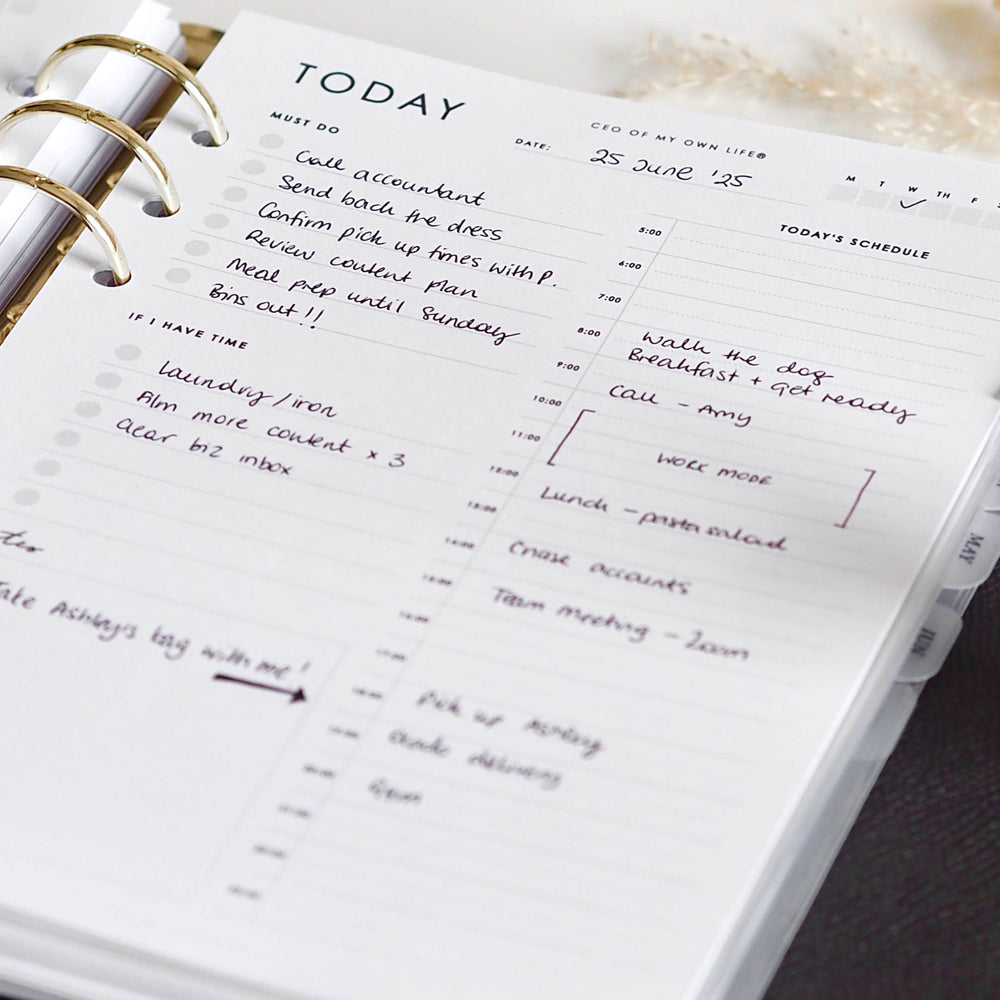 TODAY
CEO OF MY OWN LIFE®
DATE: 25 June '25
M T W TH F S
MUST DO
Call accountant
Send back the dress
Confirm pick up times with P.
Review content plan
Meal prep until Sunday
Bins out!!
IF I HAVE TIME
Laundry/iron
Film more content x 3
Clear biz inbox
Take Ashley's bag with me!
TODAY'S SCHEDULE
5:00
6:00
7:00
8:00 Walk the dog
Breakfast + Get ready
9:00
Call - Amy
10:00
11:00 WORK MODE
12:00
Lunch - pasta salad
13:00
14:00 Chase accounts
15:00 Team meeting - Zoom
16:00
17:00
18:00 Pick up Ashley
19:00 delivery
20:00 Gym
21:00
MAY
JUN